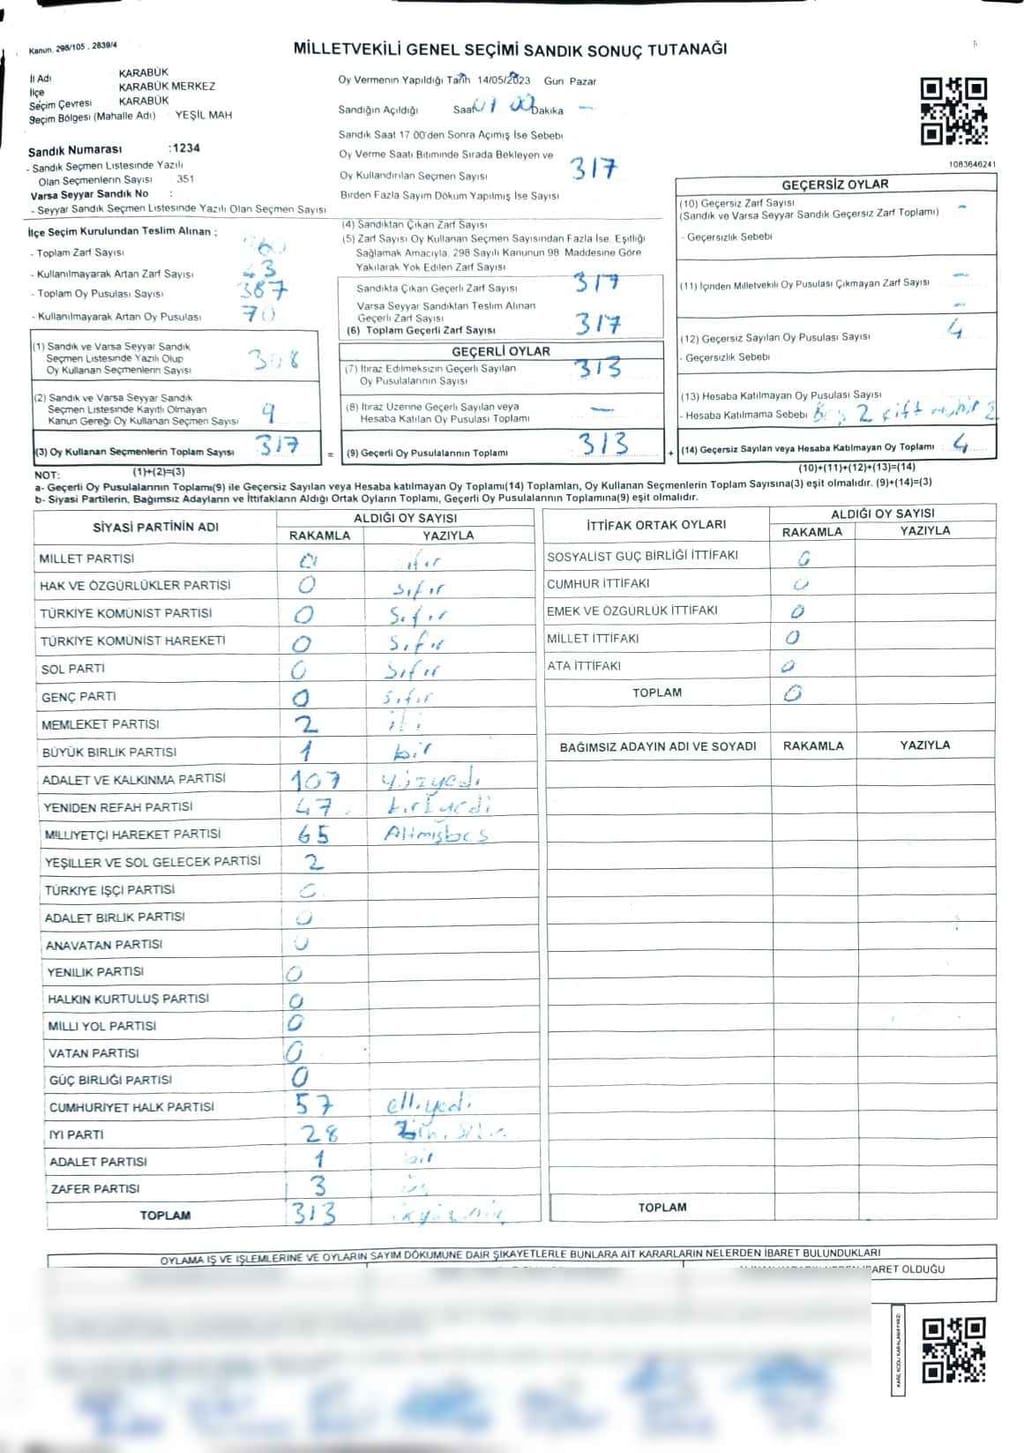 Kanun. 298/105 . 2839/4
MİLLETVEKİLİ GENEL SEÇİMİ SANDIK SONUÇ TUTANAĞI
İl Adı KARABÜK
İlçe KARABÜK MERKEZ
Seçim Çevresi KARABÜK
Seçim Bölgesi (Mahalle Adı) YEŞİL MAH
Sandık Numarası :1234
- Sandık Seçmen Listesinde Yazılı
Olan Seçmenlerin Sayısı 351
Varsa Seyyar Sandık No :
- Seyyar Sandık Seçmen Listesinde Yazılı Olan Seçmen Sayısı
İlçe Seçim Kurulundan Teslim Alınan ;
- Toplam Zarf Sayısı
- Kullanılmayarak Artan Zarf Sayısı 43
- Toplam Oy Pusulası Sayısı 387
- Kullanılmayarak Artan Oy Pusulası 70
(1) Sandık ve Varsa Seyyar Sandık
Seçmen Listesinde Yazılı Olup
Oy Kullanan Seçmenlerin Sayısı 308
(2) Sandık ve Varsa Seyyar Sandık
Seçmen Listesinde Kayıtlı Olmayan
Kanun Gereği Oy Kullanan Seçmen Sayısı 9
(3) Oy Kullanan Seçmenlerin Toplam Sayısı 317
Oy Vermenin Yapıldığı Tarih 14/05/2023 Gün Pazar
Sandığın Açıldığı Saat Dakika —
Sandık Saat 17 00'den Sonra Açımış İse Sebebi
Oy Verme Saati Bitiminde Sırada Bekleyen ve
Oy Kullandırılan Seçmen Sayısı 317
Birden Fazla Sayım Döküm Yapılmış İse Sayısı
(4) Sandıktan Çıkan Zarf Sayısı
(5) Zarf Sayısı Oy Kullanan Seçmen Sayısından Fazla İse, Eşitliği
Sağlamak Amacıyla, 298 Sayılı Kanunun 98 Maddesine Göre
Yakılarak Yok Edilen Zarf Sayısı
Sandıkta Çıkan Geçerli Zarf Sayısı 317
Varsa Seyyar Sandıktan Teslim Alınan
Geçerli Zarf Sayısı
(6) Toplam Geçerli Zarf Sayısı 317
GEÇERLİ OYLAR
(7) İtiraz Edilmeksizin Geçerli Sayılan
Oy Pusulalarının Sayısı 313
(8) İtiraz Üzerine Geçerli Sayılan veya
Hesaba Katılan Oy Pusulası Toplamı —
= (9) Geçerli Oy Pusulalarının Toplamı 313
1083646241
GEÇERSİZ OYLAR
(10) Geçersiz Zarf Sayısı
(Sandık ve Varsa Seyyar Sandık Geçersiz Zarf Toplamı) —
- Geçersizlik Sebebi
(11) İçinden Milletvekili Oy Pusulası Çıkmayan Zarf Sayısı —
(12) Geçersiz Sayılan Oy Pusulası Sayısı 4
- Geçersizlik Sebebi
(13) Hesaba Katılmayan Oy Pusulası Sayısı
- Hesaba Katılmama Sebebi 2 çift mühür 2
+ (14) Geçersiz Sayılan veya Hesaba Katılmayan Oy Toplamı 4
NOT: (1)+(2)=(3) (10)+(11)+(12)+(13)=(14)
a- Geçerli Oy Pusulalarının Toplamı(9) ile Geçersiz Sayılan veya Hesaba katılmayan Oy Toplamı(14) Toplamları, Oy Kullanan Seçmenlerin Toplam Sayısına(3) eşit olmalıdır. (9)+(14)=(3)
b- Siyasi Partilerin, Bağımsız Adayların ve İttifakların Aldığı Ortak Oyların Toplamı, Geçerli Oy Pusulalarının Toplamına(9) eşit olmalıdır.
SİYASİ PARTİNİN ADI ALDIĞI OY SAYISI
RAKAMLA YAZIYLA
MİLLET PARTİSİ 0 sıfır
HAK VE ÖZGÜRLÜKLER PARTİSİ 0 sıfır
TÜRKİYE KOMÜNİST PARTİSİ 0 sıfır
TÜRKİYE KOMÜNİST HAREKETİ 0 sıfır
SOL PARTİ 0 sıfır
GENÇ PARTİ 0 sıfır
MEMLEKET PARTİSİ 2 iki
BÜYÜK BİRLİK PARTİSİ 1 bir
ADALET VE KALKINMA PARTİSİ 107 yüzyedi
YENİDEN REFAH PARTİSİ 47 kırkyedi
MİLLİYETÇİ HAREKET PARTİSİ 65 Altmışbeş
YEŞİLLER VE SOL GELECEK PARTİSİ 2
TÜRKİYE İŞÇİ PARTİSİ 0
ADALET BİRLİK PARTİSİ 0
ANAVATAN PARTİSİ 0
YENİLİK PARTİSİ 0
HALKIN KURTULUŞ PARTİSİ 0
MİLLİ YOL PARTİSİ 0
VATAN PARTİSİ 0
GÜÇ BİRLİĞİ PARTİSİ 0
CUMHURİYET HALK PARTİSİ 57 elliyedi
İYİ PARTİ 28
ADALET PARTİSİ 1 bir
ZAFER PARTİSİ 3 üç
TOPLAM 313
İTTİFAK ORTAK OYLARI ALDIĞI OY SAYISI
RAKAMLA YAZIYLA
SOSYALİST GÜÇ BİRLİĞİ İTTİFAKI 0
CUMHUR İTTİFAKI 0
EMEK VE ÖZGÜRLÜK İTTİFAKI 0
MİLLET İTTİFAKI 0
ATA İTTİFAKI 0
TOPLAM 0
BAĞIMSIZ ADAYIN ADI VE SOYADI RAKAMLA YAZIYLA
TOPLAM
OYLAMA İŞ VE İŞLEMLERİNE VE OYLARIN SAYIM DÖKÜMÜNE DAİR ŞİKAYETLERLE BUNLARA AİT KARARLARIN NELERDEN İBARET BULUNDUKLARI
OLDUĞU